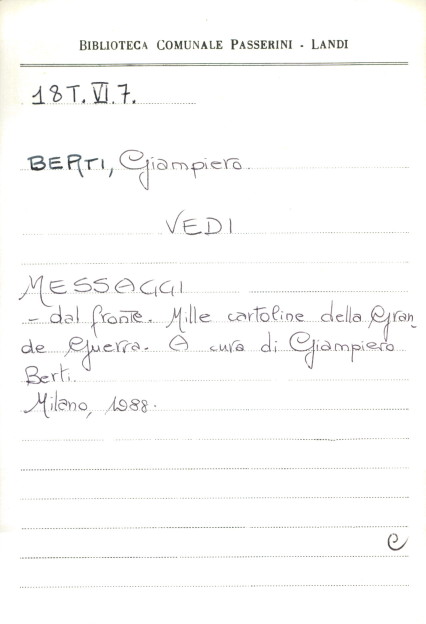 BIBLIOTECA COMUNALE PASSERINI - LANDI
18T.VI.7.
BERTI, Giampiero.
VEDI
MESSAGGI
- dal fronte. Mille cartoline della Gran_
de Guerra. A cura di Giampiero
Berti.
Milano, 1988.
C